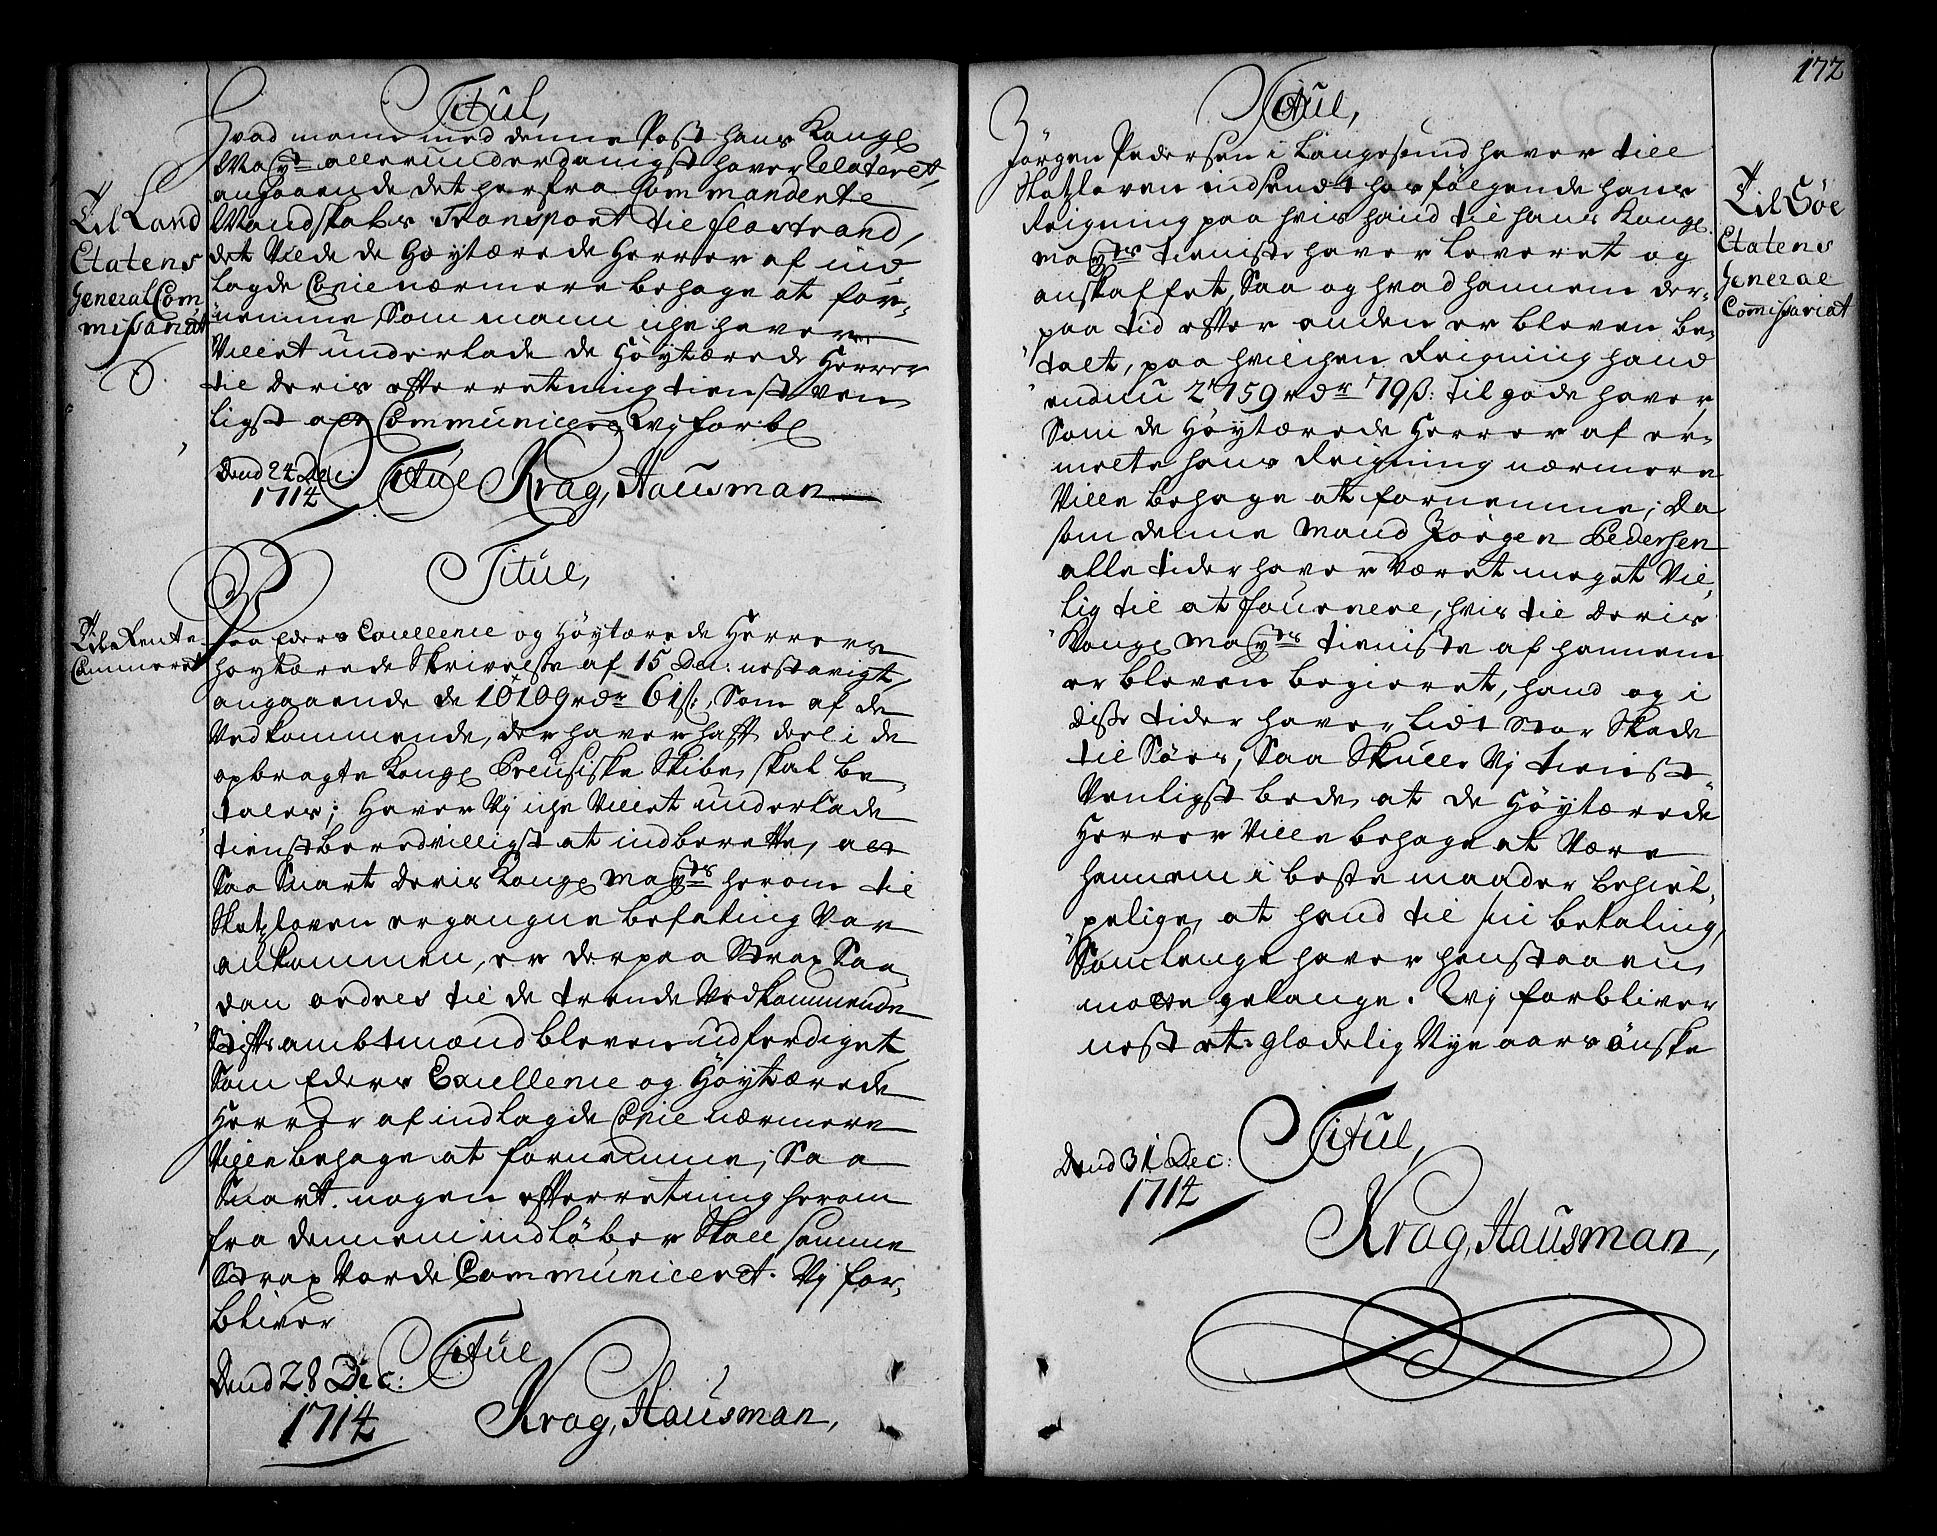 Titul,
Hvad mann med denne Post hans Kongl
May:ts allerunderdanigst haver Relateret,
angaaende det herfra Commanderte
Mandskabs Transport til fladstrand,
det Vilde de Høytærede Herrer af ind-
lagde Copie nærmere behage at for-
nemme, Som mann iche haver
Villet underlade de Høytærede Herrer
til deris efterretning tienst Ven
ligst at Communicere Wj forbl
Titul Krag, Hausman
Dend 24 Dec:
1714
Til Land
Etatens
General Com
missariat
Titul,
Paa Eders Excellence og Høytærede Herrers
høytærede Skrivelse af 15 Dec: nestavigt,
angaaende de 10109 rdr 61 ß:, Som af de
Vedkommende, der haver haft deel i de
opbragte Kongl Preusiske Skibe, skal be
tales; Haver Vj iche Villet underlade
tienstberedvilligst at indberette, at
Saa Snart deris Kongl May:ts herom til
Skatloven ergangne befaling Var
ankommen, er derpaa Strax Saa
dan ordres til de trende Vedkommende
Stiftsambtmænd bleven udferdiget,
Som Eders Excellence og Høytærede
Herrer af indlagde Copie nærmere
Ville behage at fornemme; Saa
Snart nogen efterretning herom
fra dennem indløber Skall samme
Strax Vorde Communiceret. Vj for,
bliver
Titul
Dend 28 Dec:
1714
Krag, Hausman,
Til Rente
Cammeret
172
Titul,
Jørgen Pedersen i Langesund haver till
Slotzloven indsendt hosfølgende hans
Reigning paa hvis hand til hans Kongl.
May:ts tieniste haver leveret og
anskaffet, Saa og hvad hannem der-
paa tid efter anden er bleven be-
talt, paa hvilchen Reigning hand
endnu 2759 rdr 79 ß: til gode haver,
Som de Høytærede Herrer af er-
melte hans Reigning nærmere
Ville behage at fornemme; Da
som denne Mand Jørgen Pedersen
alle tider haver Været meget Vil,
lig til at fournere, hvis til deris
Kongl May:ts tieniste af hannem
er bleven begieret, hand og i
disse tider haver lidt Stor Skade
til Søes, Saa Skulle Vj tienst
Venligst bede, at de Høytærede
Herrer Ville behage at Være
hannem i beste maader behiel,
pelige, at hand til sin betaling,
Somlenge haver henstaaen,
motte gelange. Wj forbliver
nest et glædelig Nye aars ønske
Titul,
Dend 31 Dec:
1714
Krag, Hausman,
Til Søe
Etatens
General
Comissariat